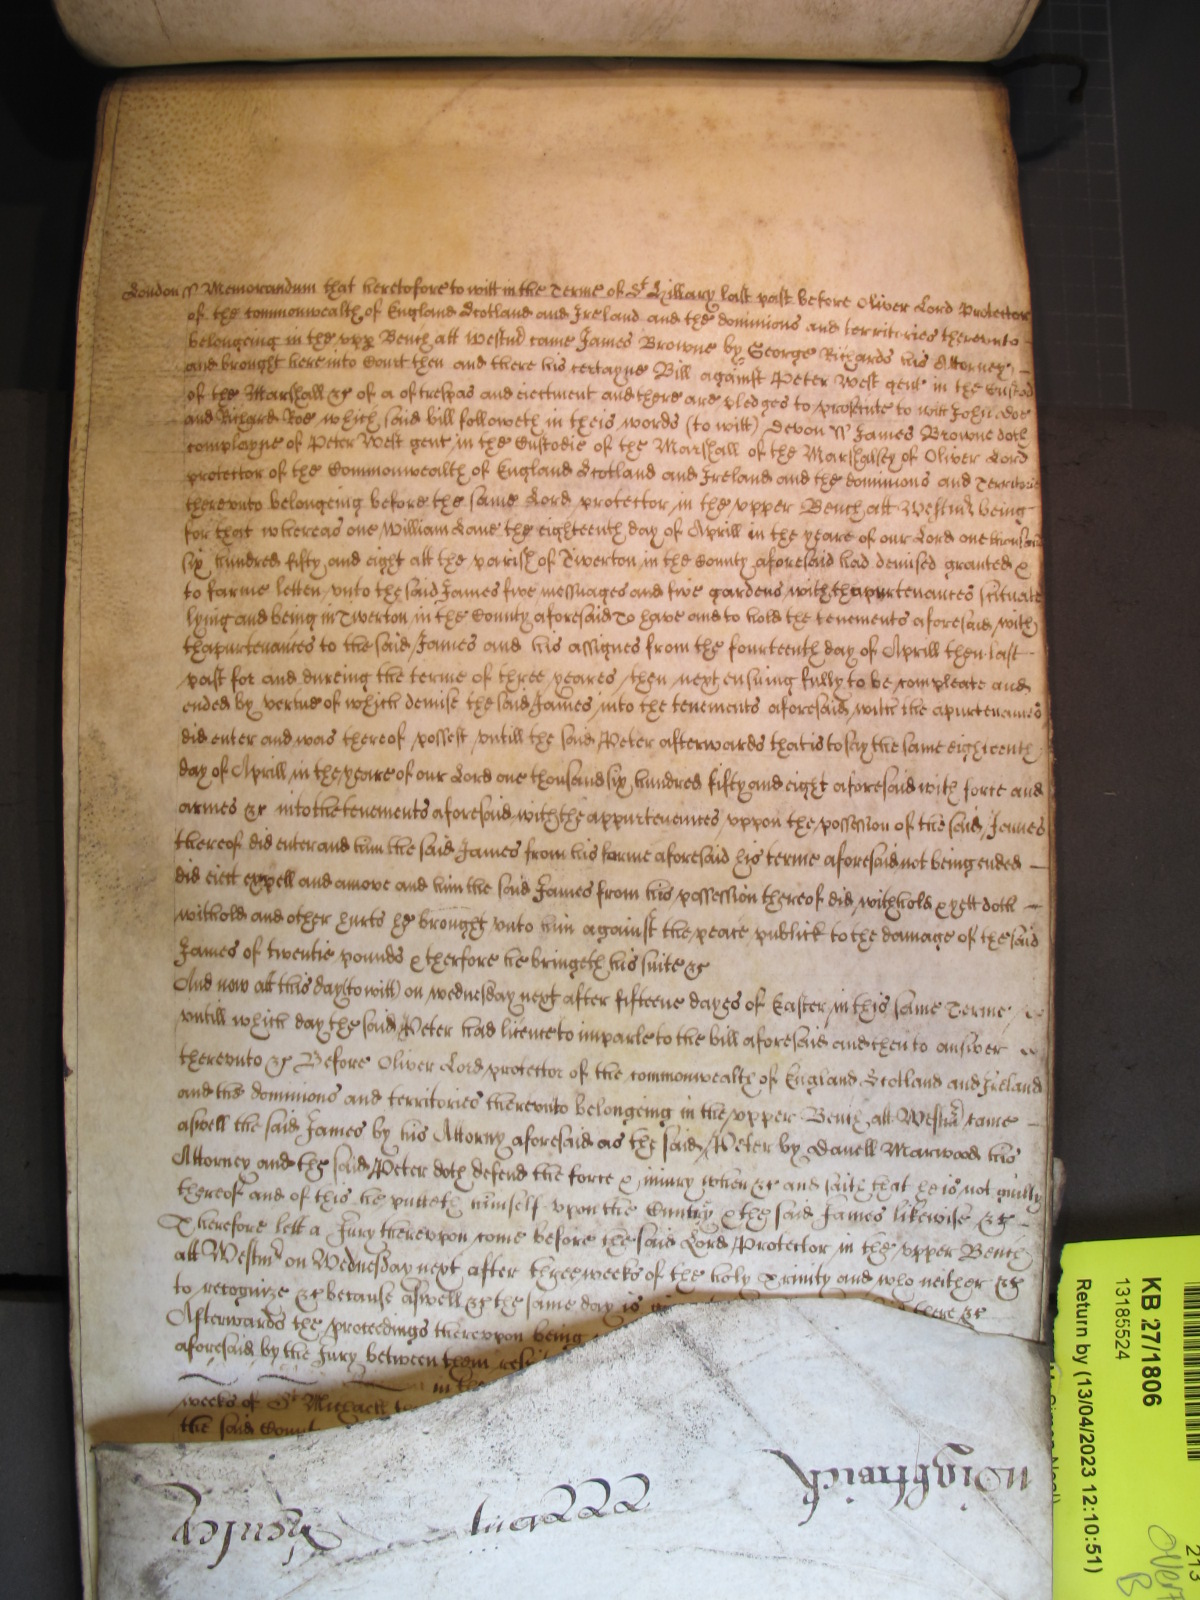 London ss Memorandum that heretofore to witt in the Terme of St Hillary last past before Oliver Lord Protector
of the commonwealth of England Scotland and Ireland and the dominions and territories therevnto
belongeing in the vpp Bench att Westmr came James Browne by George Richards his Attorney
and brought here into Court then and there his certayne Bill against Peter West gent in the Custod
of the Marshall &c of a of trespas and eiectment and there are pledges to prosecute to witt John Doe
and Richard Roe which said bill followeth in theis words (to witt) Devon ss James Browne doth
complayne of Peter West gent in the Custodie of the Marshall of the Marshalsey of Oliver Lord
protector of the Commonwealth of England Scotland and Ireland and the dominions and Territories
therevnto belongeing before the same Lord protector in the vpper Bench att Westmr being
for that whereas one William Lane the eighteenth day of Aprill in the yeare of our Lord one thousand
six hundred fifty and eight att the parish of Tiverton in the County aforesaid had demised granted &
to farme letten vnto the said James five messuages and five gardens with thapurtenances scituate
lying and being in Tiverton in the County aforesaid To have and to hold the tenements aforesaid with
thapurtenances to the said James and his assignes from the fourteenth day of Aprill then last
past for and dureing the terme of three yeares then next ensuing fully to be compleate and
ended by vertue of which demise the said James into the tenements aforesaid with the apurtenances
did enter and was thereof possest vntill the said Peter afterwards that is to say the same eighteenth
day of Aprill in the yeare of our Lord one thousand six hundred fifty and eight aforesaid with force and
armes &c into the tenements aforesaid with the appurtenances vppon the possession of the said James
thereof did enter and him the said James from his farme aforesaid his terme aforesaid not being ended
did eiect expell and amove and him the said James from his possession thereof did withhold & yett doth
withold and other hurts he brought vnto him against the peace publick to the damage of the said
James of twentie pounds & therfore he bringeth his suite &c
And now att this day (to witt) on wednesday next after fifteene dayes of Easter in this same Terme
vntill which day the said Peter had licence to imparle to the bill aforesaid and then to answer
therevnto &c Before Oliver Lord protector of the commonwealth of England Scotland and Ireland
and the dominions and territories therevnto belongeing in the vpper Bench att Westmr came
aswell the said James by his Attorny aforesaid as the said Peter by Danell Marwood his
Attorney and the said Peter doth defend the force & iniury when &c and saith that he is not guilty
thereof and of this he putteth himself vpon the Cuntry & the said James likewise &c
Therefore lett a Jury therevpon come before the said Lord Protector in the vpper Bench
att Westmr on Wednesday next after three weeks of the holy Trinity and who neither &c
to recognize &c because aswell &c the same day is there &c
Afterwards the proceedings therevpon being
aforesaid by the Jury between them
in the
weeks of St Michaell
the said Court
KB 27/1806
13185524
Return by (13/04/2023 12:10:51)
213